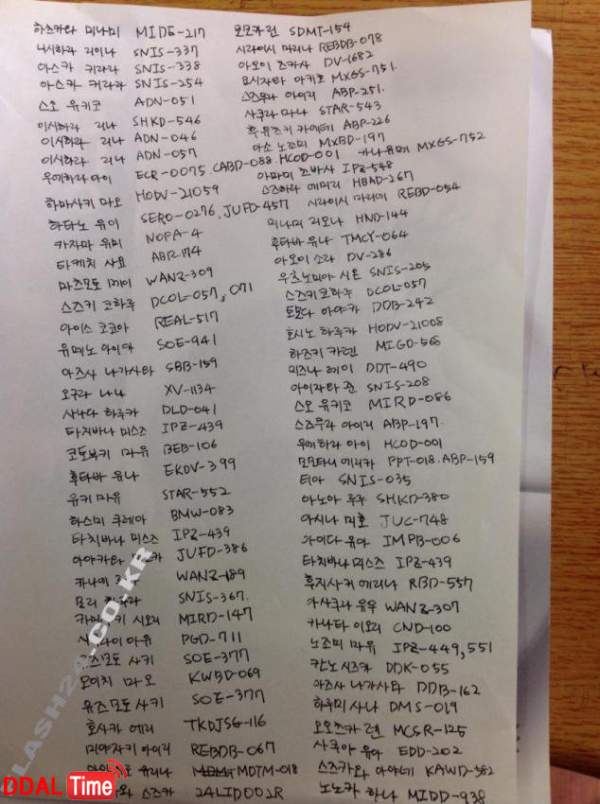 하즈카타 미나미 MIDE-217
니시하라 리이나 SNIS-337
아스카 키라라 SNIS-338
아스카 키라라 SNIS-254
스오 유키코 ADN-051
이시하라 리나 SHKD-546
이시하라 리나 ADN-046
이시하라 리나 ADN-057
우에하라 아이 ECR-0075, CABD-088 HCOD-001
하마사키 마오 HODV-21059
하타노 유이 SERO-0276, JUFD-457
카자마 유미 NOFA-4
타케치 사요 ABR-174
마츠모토 메이 WANZ-309
스즈키 코하루 DCOL-057, 071
아이스 코코아 REAL-517
유메노 아이카 SOE-941
아즈사 나가사타 SBB-159
오구라 나나 XV-1134
사나다 하루카 DLD-041
타치바나 미스즈 IPZ-439
코토부키 마유 BEB-106
후타바 유나 EKDV-399
유키 마유 STAR-552
하스미 쿠레아 BMW-083
타치바나 미스즈 IPZ-439
JUFD-386
카나에 WANZ-189
모리 SNIS-367.
키 시오리 MIRD-147
이 아유 PGD-711
유즈모토 사키 SOE-377
오이치 마오 KWBD-069
유즈모토 사키 SOE-377
호사카 에리 TKDJSG-116
미야자키 아이리 REBDB-067
유리나 MDTM-018
와 스즈카 24LID002R
모모카 린 SDMT-154
시라이시 마리나 REBDB-078
아오이 츠카사 DV-1682
요시자와 아키호 MXGS-751.
스즈무라 아이리 ABP-251.
사쿠라 마나 STAR-543
후유츠키 카에데 ABP-226
아소 노조미 MXBD-197
카나 유메 MXGS-752
아마미 츠바사 IPZ-548
스즈하라 에미리 HBAD-267
시라이시 마리에 REBD-054
미나미 리오나 HND-144
후타바 유나 TMCY-064
아오이 소라 DV-286
우츠노미야 시온 SNIS-205
스즈키 코하루 DCOL-057
토모다 아야카 DDB-242
호시노 하루카 HODV-21008
하즈키 카렌 MIGD-568
미즈나 레이 DDT-490
아이자와 쥰 SNIS-208
스오 유키코 MIRD-086
스즈무라 아이리 ABP-197.
우에하라 아이 HCOD-001
모모타니 에리카 PPT-018. ABP-159
티아 SNIS-035
아노아 루루 SHKD-380
아시나 미호 JUC-748
아이다 유아 IMPB-006
타치바나 미스즈 IPZ-439
후지사키 에리나 RBD-557
아사쿠라 유우 WANZ-307
카나타 이오리 CND-100
노조미 마유 IPZ-449, 551
칸노 시즈카 DDK-055
아즈사 나가사타 DDB-162
하루미 사나 DMS-019
오오츠카 렌 MCSR-125
사쿠야 유아 EDD-202
스즈카와 아야네 KAWD-582
노노카 하나 MIDD-938
LASH24.CO.KR
DDAL Time